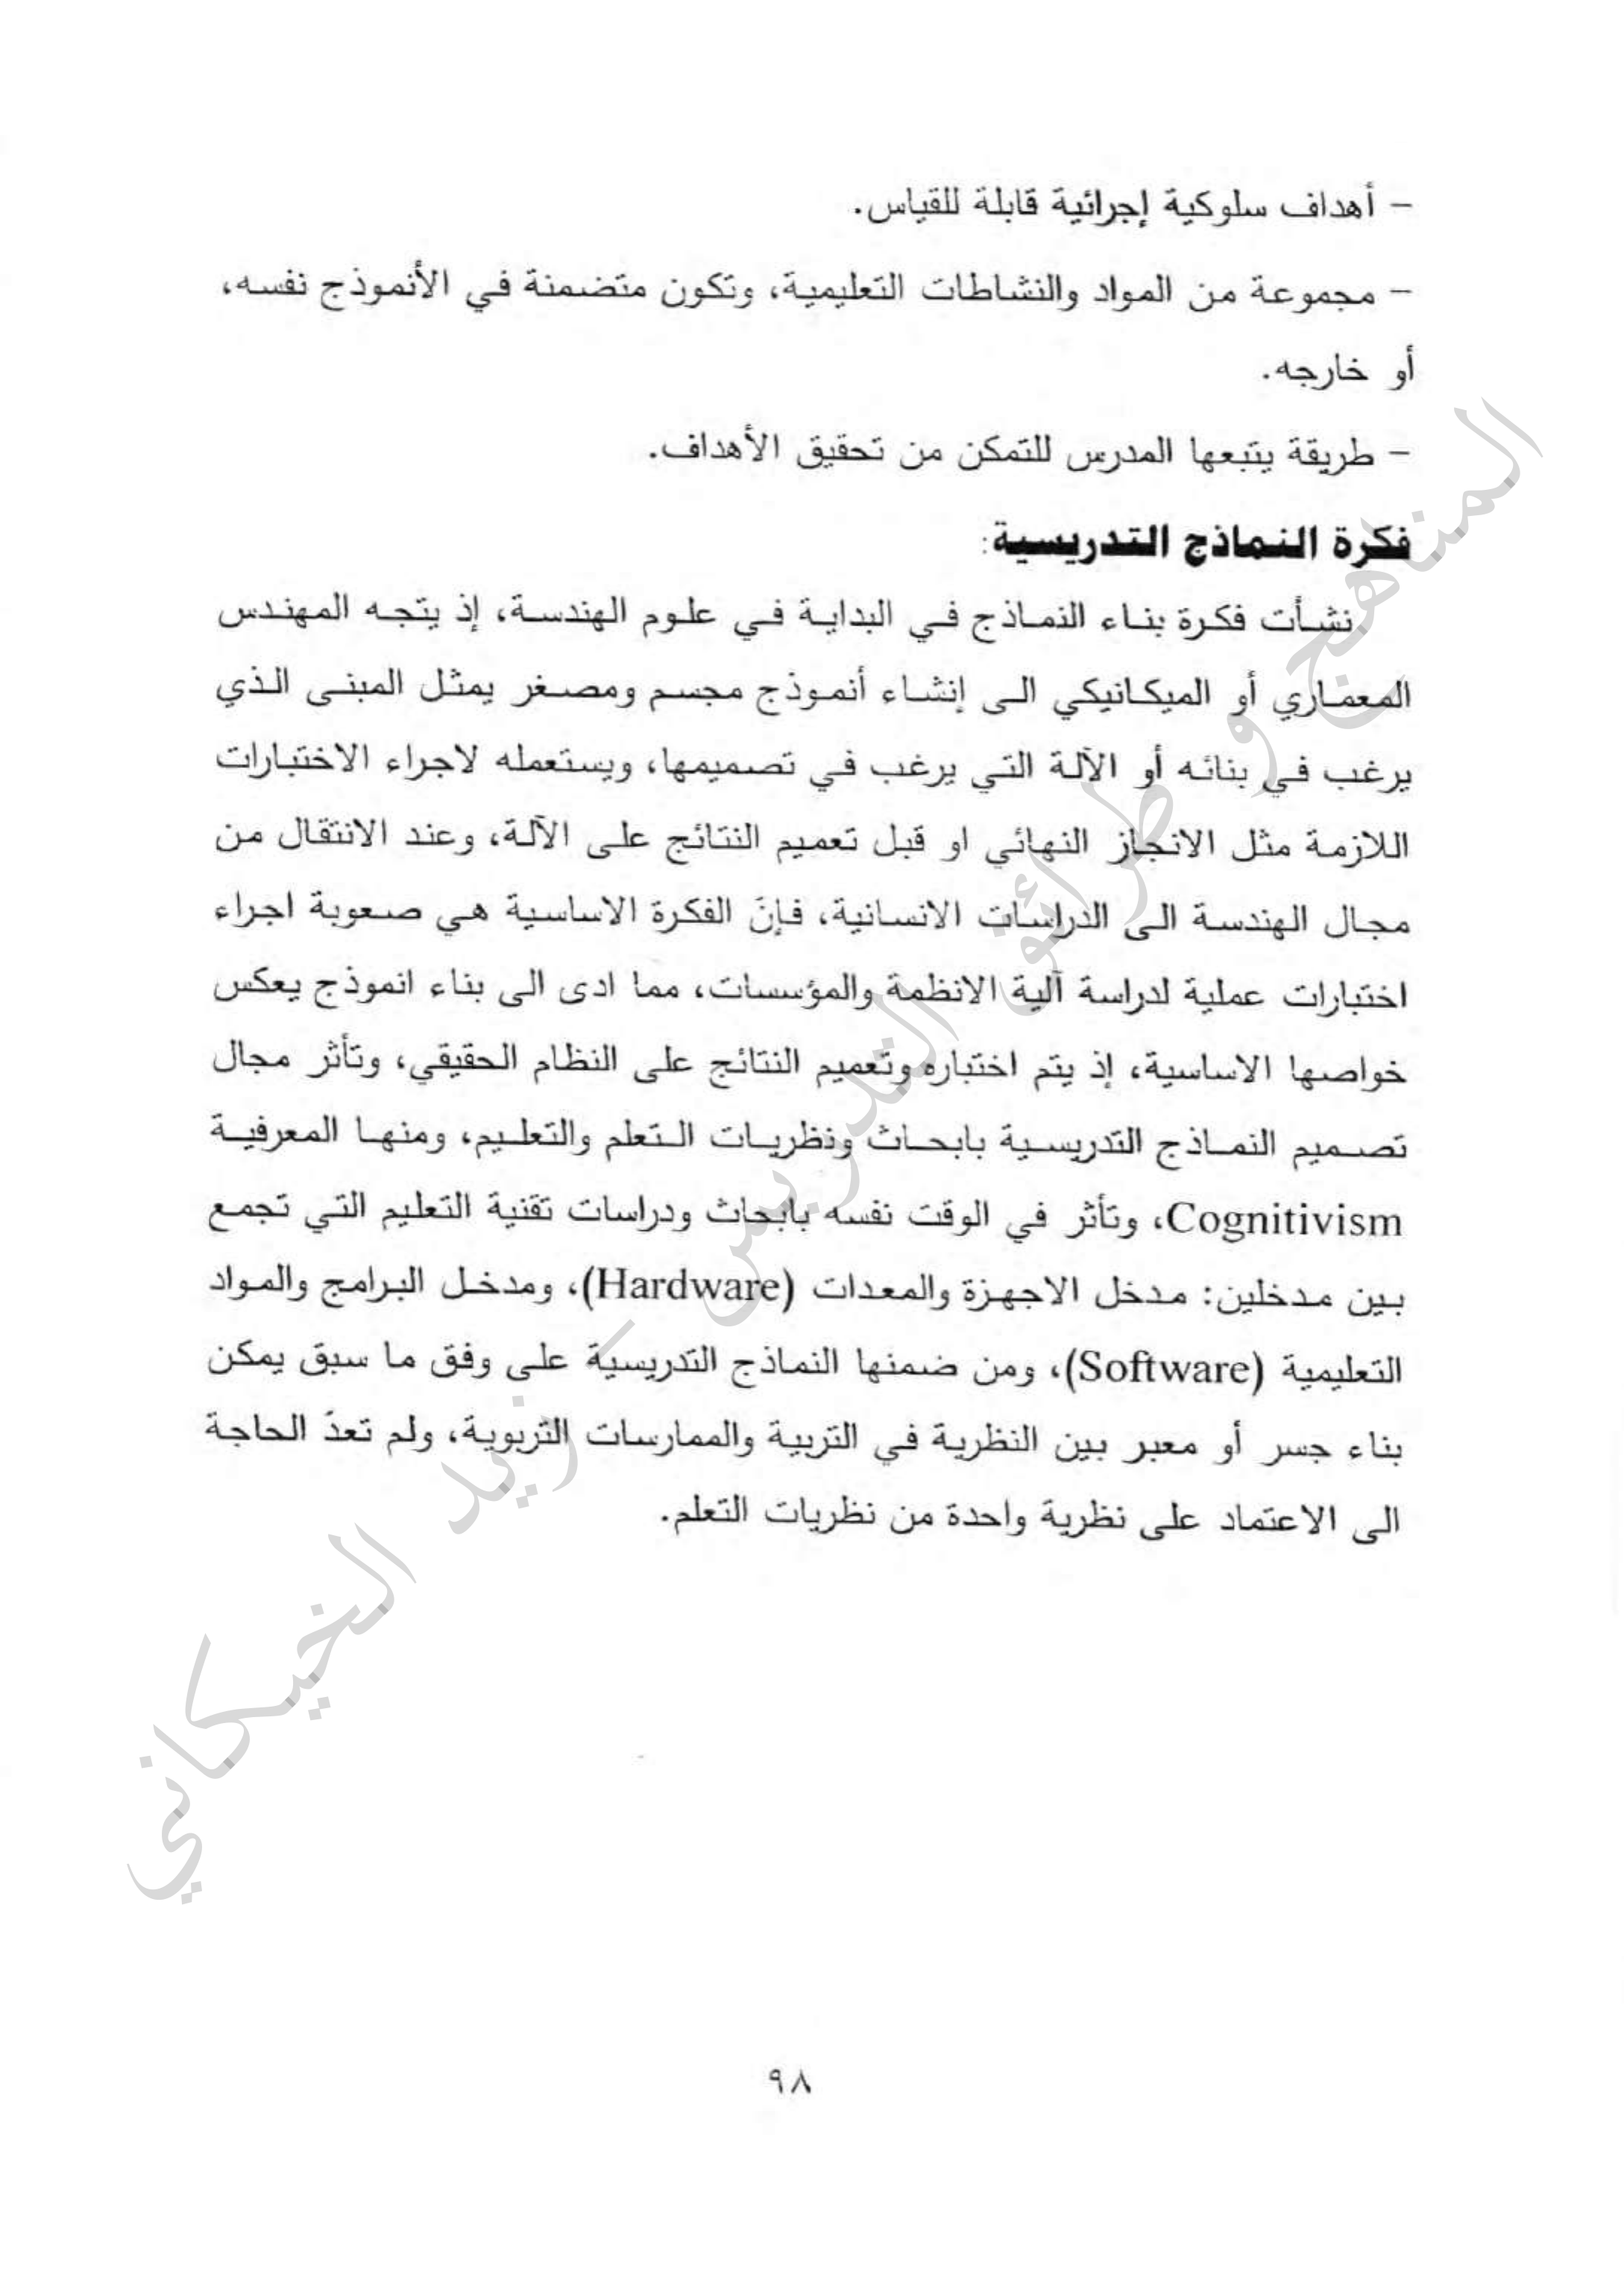 – أهداف سلوكية إجرائية قابلة للقياس.
– مجموعة من المواد والنشاطات التعليمية، وتكون متضمنة في الأنموذج نفسه،
أو خارجه.
– طريقة يتبعها المدرس للتمكن من تحقيق الأهداف.
فكرة النماذج التدريسية:
نشأت فكرة بناء النماذج في البداية في علوم الهندسة، إذ يتجه المهندس
المعماري أو الميكانيكي الى إنشاء أنموذج مجسم ومصغر يمثل المبنى الذي
يرغب في بنائه أو الآلة التي يرغب في تصميمها، ويستعمله لاجراء الاختبارات
اللازمة مثل الانجاز النهائي او قبل تعميم النتائج على الآلة، وعند الانتقال من
مجال الهندسة الى الدراسات الانسانية، فإنَ الفكرة الاساسية هي صعوبة اجراء
اختبارات عملية لدراسة آلية الانظمة والمؤسسات، مما ادى الى بناء انموذج يعكس
خواصها الاساسية، إذ يتم اختباره وتعميم النتائج على النظام الحقيقي، وتأثر مجال
تصميم النماذج التدريسية بابحاث ونظريات التعلم والتعليم، ومنها المعرفية
Cognitivism، وتأثر في الوقت نفسه بابحاث ودراسات تقنية التعليم التي تجمع
بين مدخلين: مدخل الاجهزة والمعدات (Hardware)، ومدخل البرامج والمواد
التعليمية (Software)، ومن ضمنها النماذج التدريسية على وفق ما سبق يمكن
بناء جسر أو معبر بين النظرية في التربية والممارسات التربوية، ولم تعدّ الحاجة
الى الاعتماد على نظرية واحدة من نظريات التعلم.
المناهج و طرائق التدريس – زيد الخيكاني
٩٨